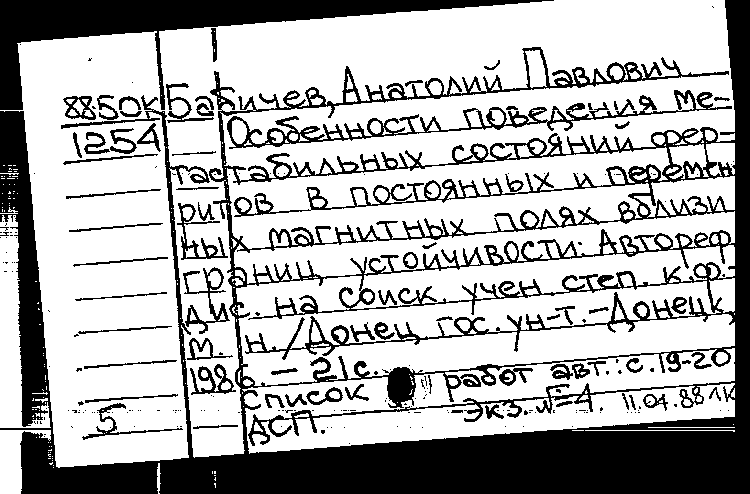 88.50К Бабичев, Анатолий Павлович.
1254 Особенности поведения ме-
тастабильных состояний фер-
ритов в постоянных и перемен-
ных магнитных полях вблизи
границ устойчивости: Автореф.
дис. на соиск. учен. степ. к.ф.-
м. н. /Донец. гос. ун-т. – Донецк,
1986. – 21 с.
Список работ авт.: с. 19-20
5 ДСП. Экз. №4. 11.01.88